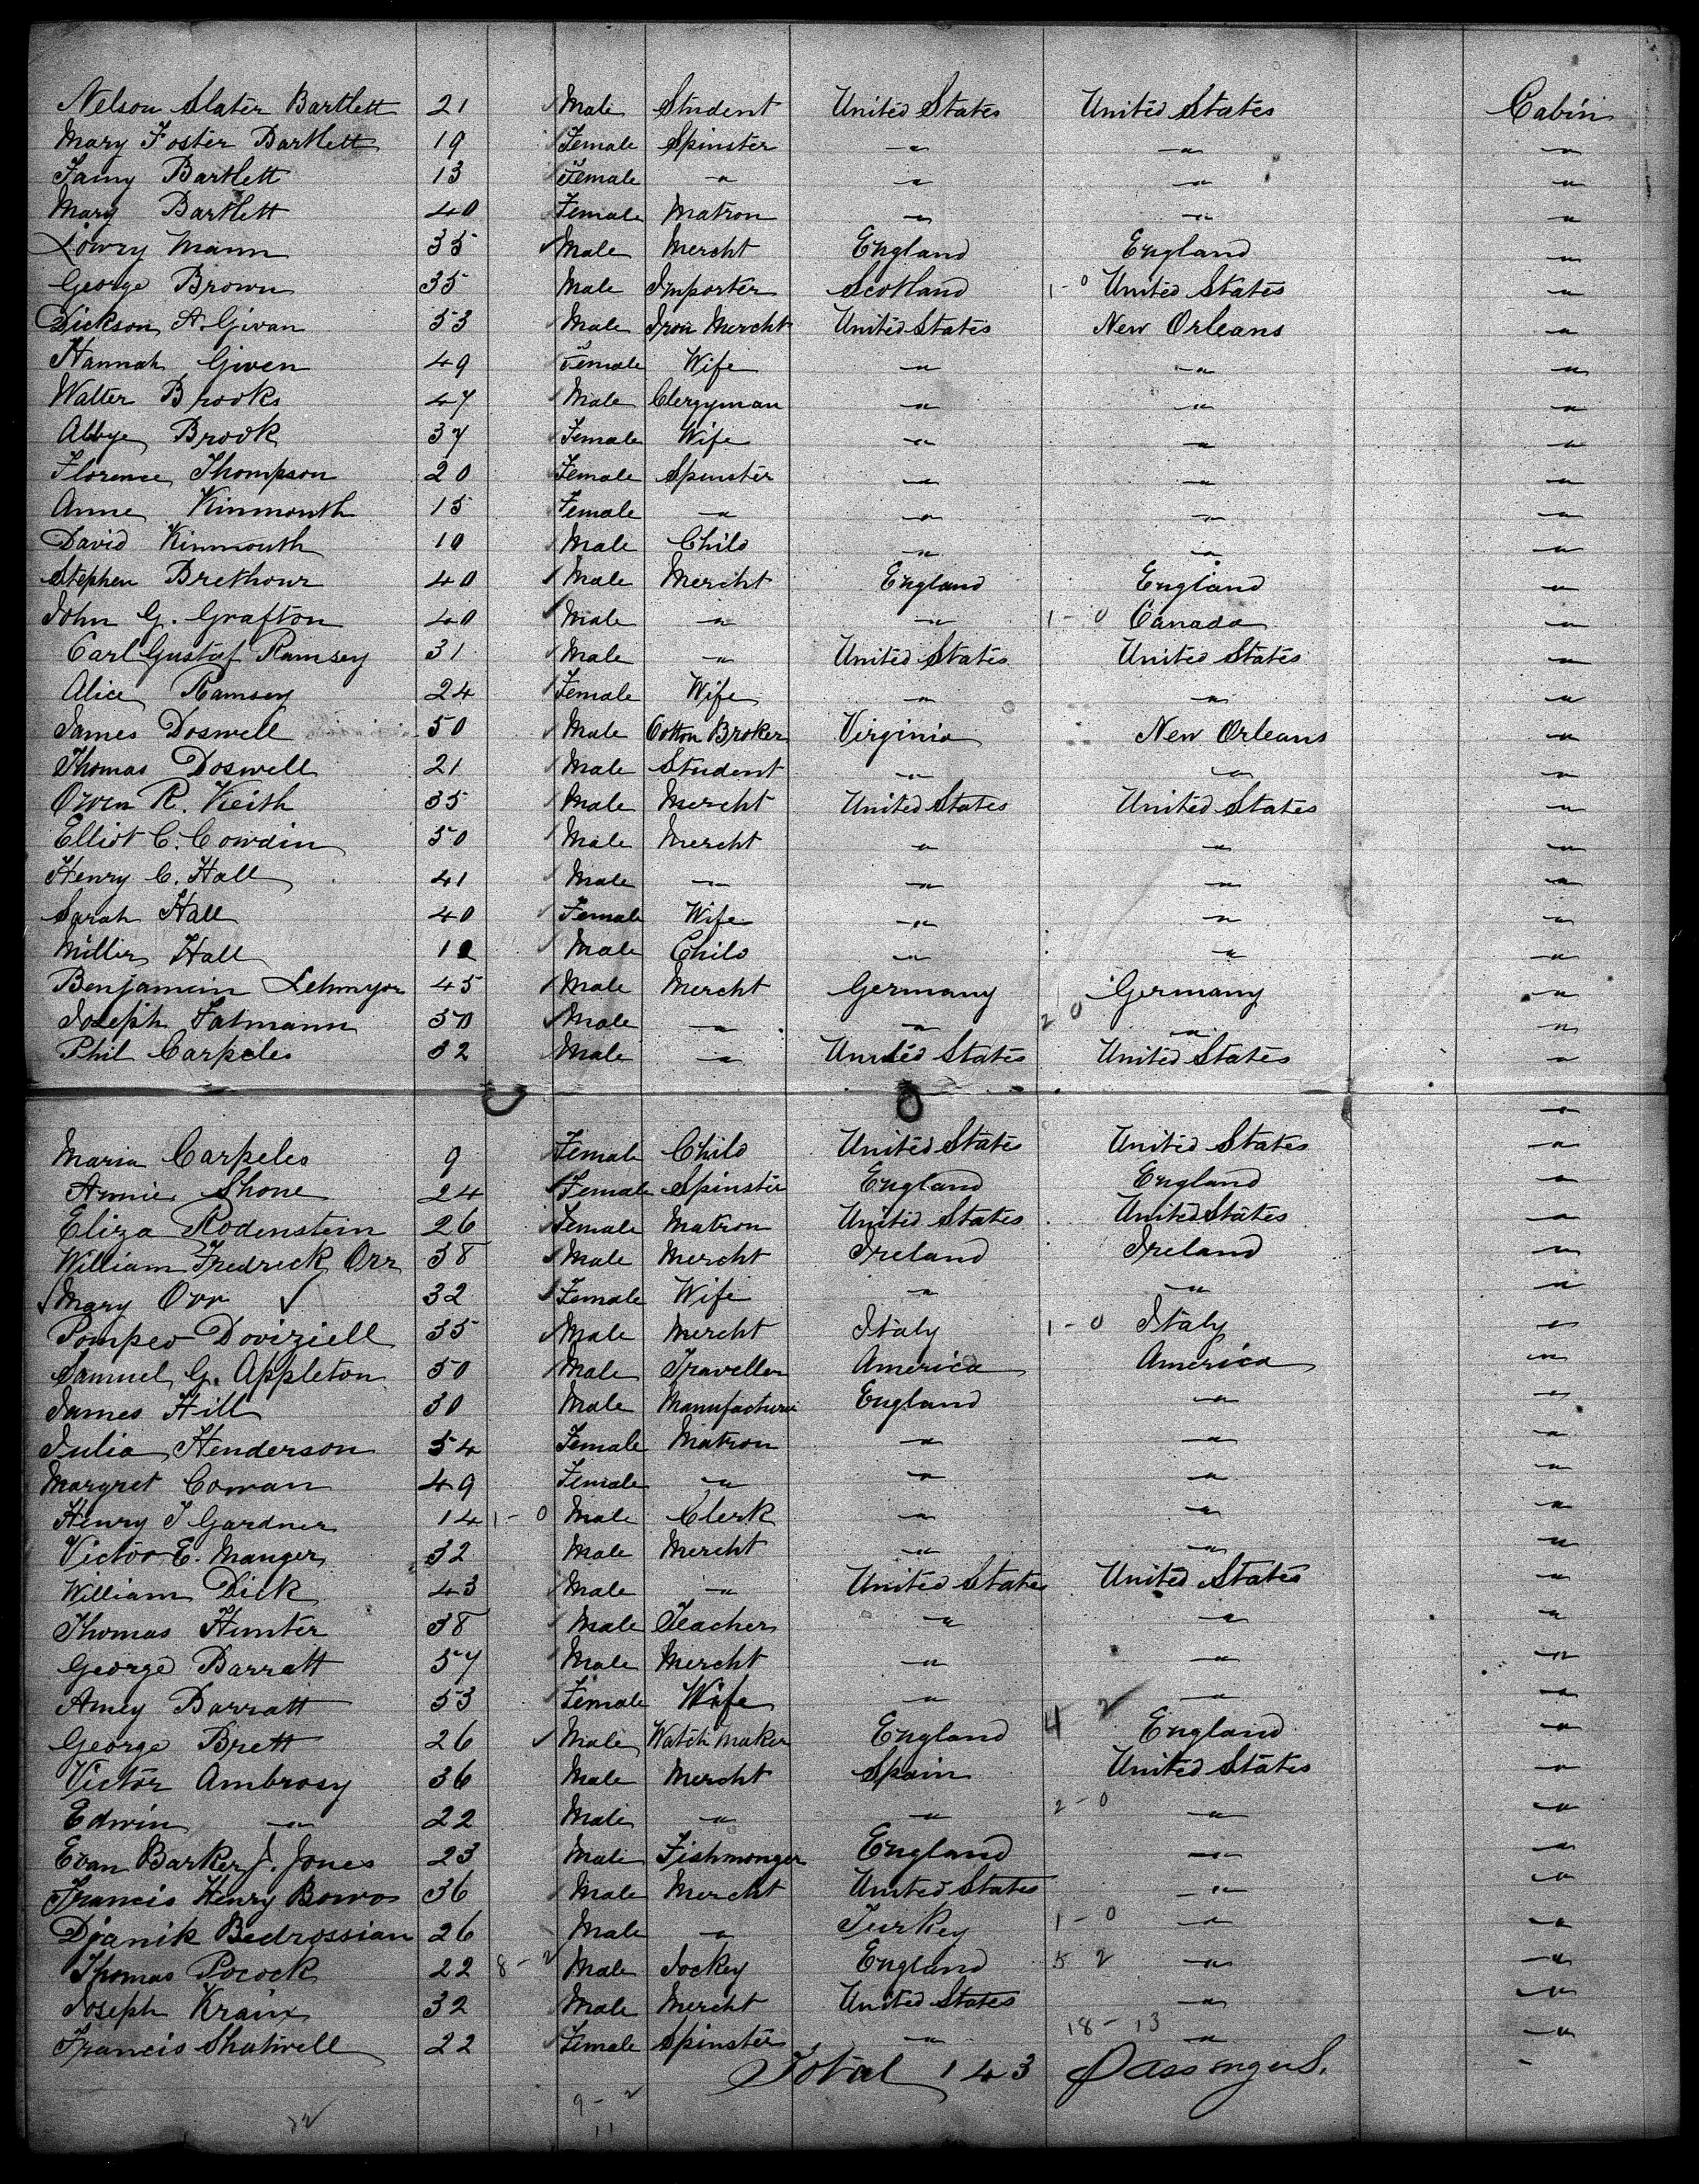 Nelson Slater Bartlett 21 Male Student United States United States Cabin
Mary Foster Bartlett 19 Female Spinster " " "
Fanny Bartlett 13 Female " " " "
Mary Bartlett 40 Female Matron " " "
Lowry Mann 35 Male Mercht England England "
George Brown 35 Male Importer Scotland 1-0 United States "
Dickson A. Givan 53 Male Iron Mercht United States New Orleans "
Hannah Given 49 Female Wife " " "
Walter Brooks 47 Male Clergyman " " "
Abbye Brook 37 Female Wife " " "
Florence Thompson 20 Female Spinster " " "
Anne Kinmonth 15 Female " " " "
David Kinmouth 10 Male Child " " "
Stephen Brethour 40 Male Mercht England England "
John G. Grafton 40 Male " " 1-0 Canada "
Carl Gustaf Ramsey 31 Male " United States United States "
Alice Ramsey 24 Female Wife " " "
James Doswell 50 Male Cotton Broker Virginia New Orleans "
Thomas Doswell 21 Male Student " " "
Owen R. Keith 35 Male Mercht United States United States "
Elliot C. Cowdin 50 Male Mercht " " "
Henry C. Hall 41 Male " " " "
Sarah Hall 40 Female Wife " " "
Miller Hall Male Child " " "
Benjamin Lehmyor 45 Male Mercht Germany Germany "
Joseph Fatmann 50 Male " " 2 0 " "
Phil Carpeles 32 Male " United States United States "
"
Maria Carpeles 9 Female Child United States United States "
Annie Shone 24 Female Spinster England England "
Eliza Rodenstein 26 Female Matron United States United States "
William Fredrick Orr 38 Male Mercht Ireland Ireland "
Mary Orr 32 Female Wife " " "
Pompeo Doviziell 35 Male Mercht Italy 1-0 Italy "
Samuel G. Appleton 50 Male Traveller America America "
James Hill 30 Male Manufacturer England " "
Julia Henderson 54 Female Matron " " "
Margret Cowan 49 Female " " " "
Henry J Gardner 14 1-0 Male Clerk " " "
Victor E. Manger 32 Male Mercht " " "
William Dick 43 Male " United States United States "
Thomas Hunter 38 Male Teacher " " "
George Barratt 57 Male Mercht " " "
Amey Barratt 53 Female Wife " " "
George Brett 26 Male Watch Maker England 4 2 England "
Victor Ambrosy 36 Male Mercht Spain United States "
Edwin " 22 Male " " 2-0 " "
Evan Barker J. Jones 23 Male Fishmonger England " "
Francis Henry Bowo 36 Male Mercht United States " "
Djanik Bedrossian 26 Male " Turkey 1-0 " "
Thomas Pocock 22 8-2 Male Jockey England 5 2 " "
Joseph Kraix 32 Male Mercht United States " "
18-13
Francis Shatwell 22 Female Spinster " " "
Total 143 Passengers.
9-2
11